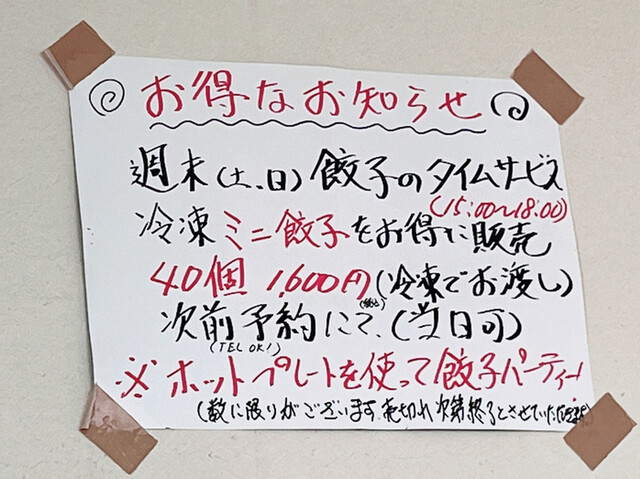 お得なお知らせ
週末(土、日)餃子のタイムサービス
(15:00~18:00)
冷凍ミニ餃子をお得に販売
40個 1,600円(冷凍でお渡し)
(税込)
次前予約にて、(当日可)
(TEL OK!)
※ホットプレートを使って餃子パーティー!
(数に限りがございます。売切れ次第終了とさせていただきます)